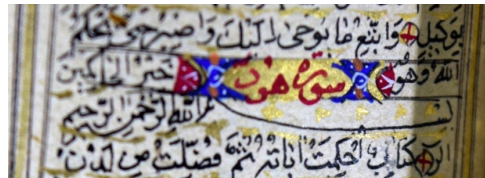 بِوَكِيلٍ وَاتَّبِعْ مَا يُوحَى إِلَيْكَ وَاصْبِرْ حَتَّى يَحْكُمَ
اللّٰهُ وَهُوَ سورة هود خَيْرُ الْحَاكِمِينَ
بِسْمِ اللّٰهِ الرَّحْمٰنِ الرَّحِيمِ
الٓر كِتَابٌ أُحْكِمَتْ اٰيَاتُهُ ثُمَّ فُصِّلَتْ مِنْ لَدُنْ